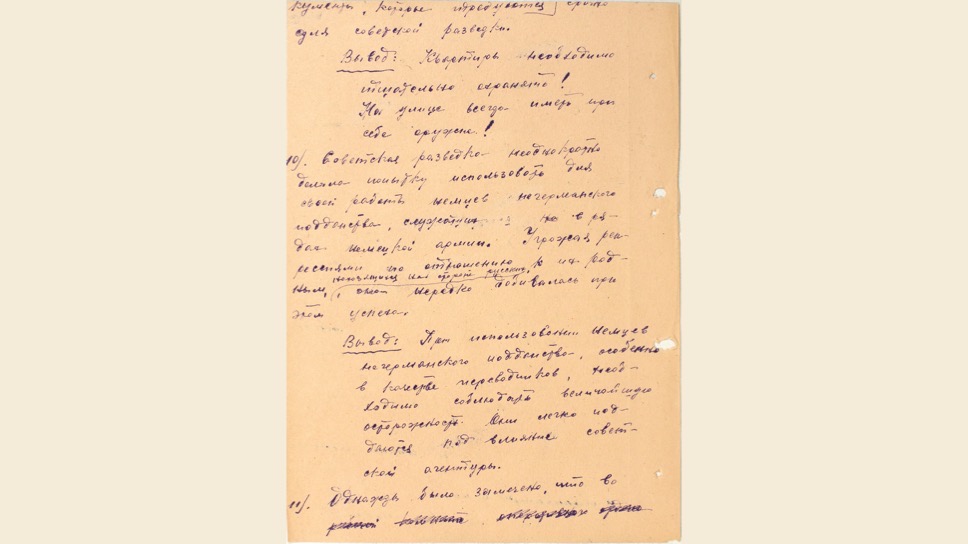 кументы, которые требуются срочно
для советской разведки.
Вывод: Квартиры необходимо
тщательно охранять!
На улице всегда иметь при
себе оружие!
10). Советская разведка неоднократно
делала попытку использовать для
своей работы немцев негерманского
подданства, служащих но в ря-
дах немецкой армии. Угрожая реп-
рессиями по отношению к их род-
ным, находящимся на стороне русских,
она нередко добивалась при
этом успеха.
Вывод: При использовании немцев
негерманского подданства, особенно
в качестве переводчиков, необ-
ходимо соблюдать величайшую
осторожность. Они легко под-
даются под влияние совет-
ской агентуры.
11). Однажды было замечено, что во